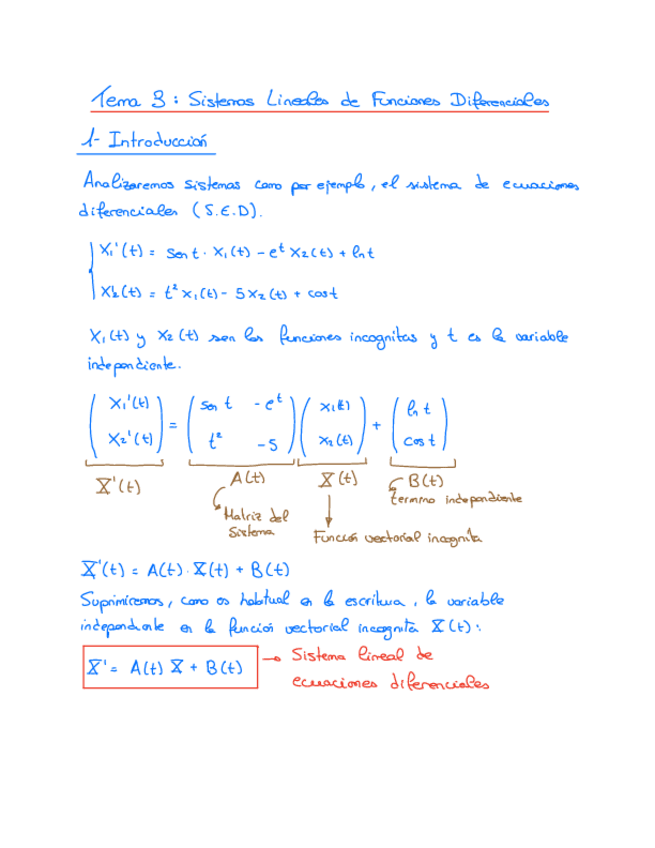 Tema 3: Sistemas Lineales de Funciones Diferenciales
1- Introducción
Analizaremos sistemas como por ejemplo, el sistema de ecuaciones
diferenciales (S.E.D).
X₁'(t) = sen t · X₁(t) - eᵗ X₂(t) + ln t
X₂'(t) = t² x₁(t) - 5 X₂(t) + cos t
X₁(t) y X₂(t) son las funciones incognitas y t es la variable
independiente.
( X₁'(t) ) = ( sen t  -eᵗ ) ( X₁(t) ) + ( ln t )
( X₂'(t) )   ( t²  -5 ) ( X₂(t) )   ( cos t )
X'(t) A(t) X(t) B(t)
termino independiente
Matriz del
Sistema
Función vectorial incognita
X'(t) = A(t) · X(t) + B(t)
Suprimiremos, como es habitual en la escritura, la variable
independiente en la función vectorial incognita X(t):
X' = A(t) X + B(t) → Sistema lineal de
ecuaciones diferenciales